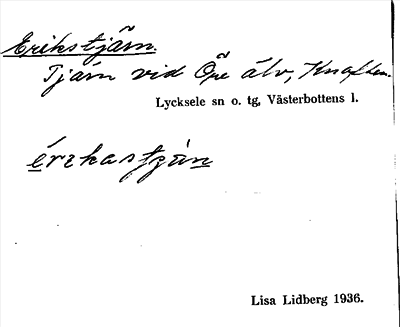 Erikstjärn.
Tjärn vid Öre älv, Knaften.
Lycksele sn o. tg, Västerbottens l.
Lisa Lidberg 1936.